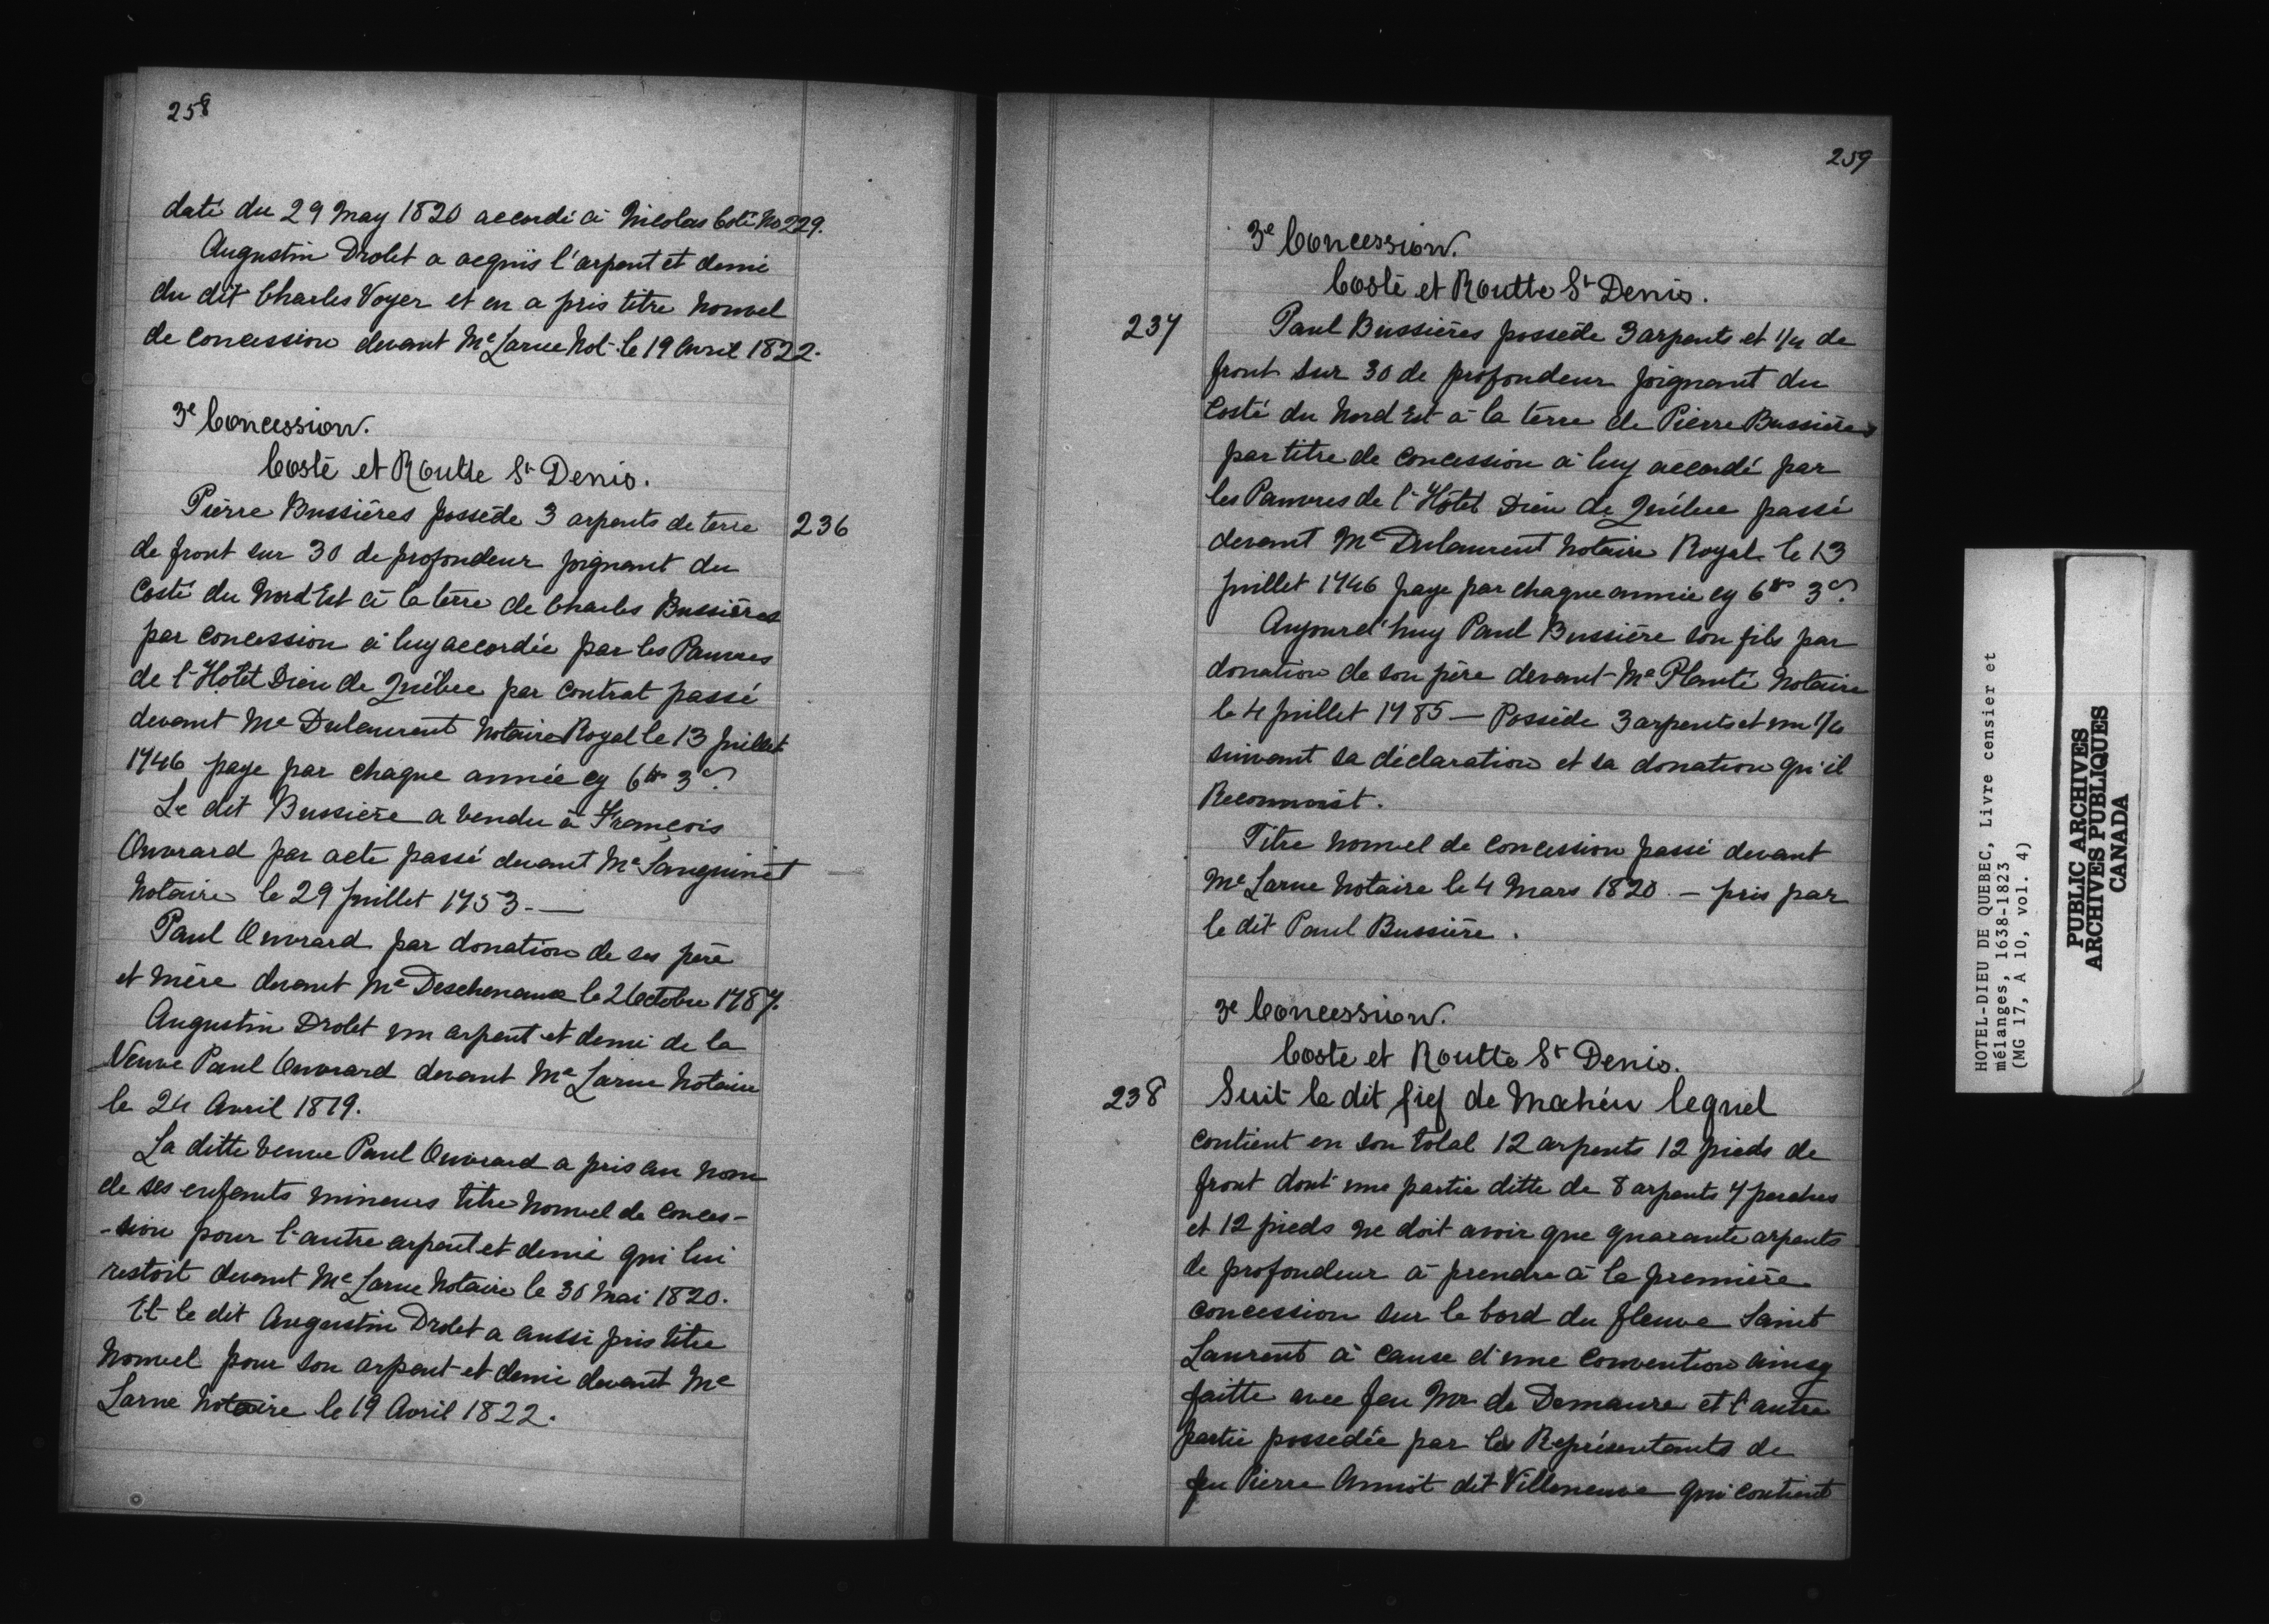 258
daté du 29 May 1820 accordé à Nicolas Coté No 229.
Augustin Drolet a acquis l'arpent et demi
du dit Charles Voyer et en a pris titre nouvel
de concession devant Me Larue Not. le 19 Avril 1822.
3e Concession.
Costé et Routte St Denis.
236
Pierre Bussières possède 3 arpents de terre
de front sur 30 de profondeur joignant du
Costé du Nord Est à la terre de Charles Bussières
par concession à luy accordée par les Pauvres
de l'Hotel Dieu de Québec par contrat passé
devant Me Dulaurent Notaire Royal le 13 Juillet
1746 paye par chaque année cy 6tt 3s.
Le dit Bussière a vendu à François
Ouvrard par acte passé devant Me Sanguinet
Notaire le 29 Juillet 1753. —
Paul Ouvrard par donation de ses père
et mère devant Me Deschenaux le 2 Octobre 1787.
Augustin Drolet un arpent et demi de la
Veuve Paul Ouvrard devant Me Larue Notaire
le 24 Avril 1819.
La ditte veuve Paul Ouvrard a pris au nom
de ses enfants mineurs titre nouvel de conces-
-sion pour l'autre arpent et demi qui lui
restoit devant Me Larue Notaire le 30 Mai 1820.
Et le dit Augustin Drolet a aussi pris titre
nouvel pour son arpent et demi devant Me
Larue Notaire le 19 Avril 1822.
259
3e Concession.
Costé et Routte St Denis.
237
Paul Bussières possède 3 arpents et 1/4 de
front sur 30 de profondeur joignant du
Costé du Nord Est à la terre de Pierre Bussières
par titre de concession à luy accordé par
les Pauvres de l'Hôtel Dieu de Québec passé
devant Me Dulaurent Notaire Royal le 13
Juillet 1746 paye par chaque année cy 6tt 3s.
Aujourd'huy Paul Bussière son fils par
donation de son père devant Me Planté Notaire
le 4 Juillet 1785 — Possède 3 arpents et un 1/4
suivant sa déclaration et sa donation qu'il
Reconnoist.
Titre nouvel de concession passé devant
Me Larue Notaire le 4 Mars 1820 — pris par
le dit Paul Bussière.
3e Concession.
Coste et Routte St Denis.
238
Suit le dit fief de Mahéu lequel
contient en son total 12 arpents 12 pieds de
front dont une partie ditte de 8 arpents 7 perches
et 12 pieds ne doit avoir que quarante arpents
de profondeur à prendre à la première
concession sur le bord du fleuve Saint
Laurent à cause d'une convention ainsy
faitte avec feu Mr de Demaure et l'autre
partie possedée par les Représentants de
feu Pierre Amiot dit Villeneuve qui contient
HOTEL-DIEU DE QUEBEC, Livre censier et
mélanges, 1638-1823
(MG 17, A 10, vol. 4)
PUBLIC ARCHIVES
ARCHIVES PUBLIQUES
CANADA